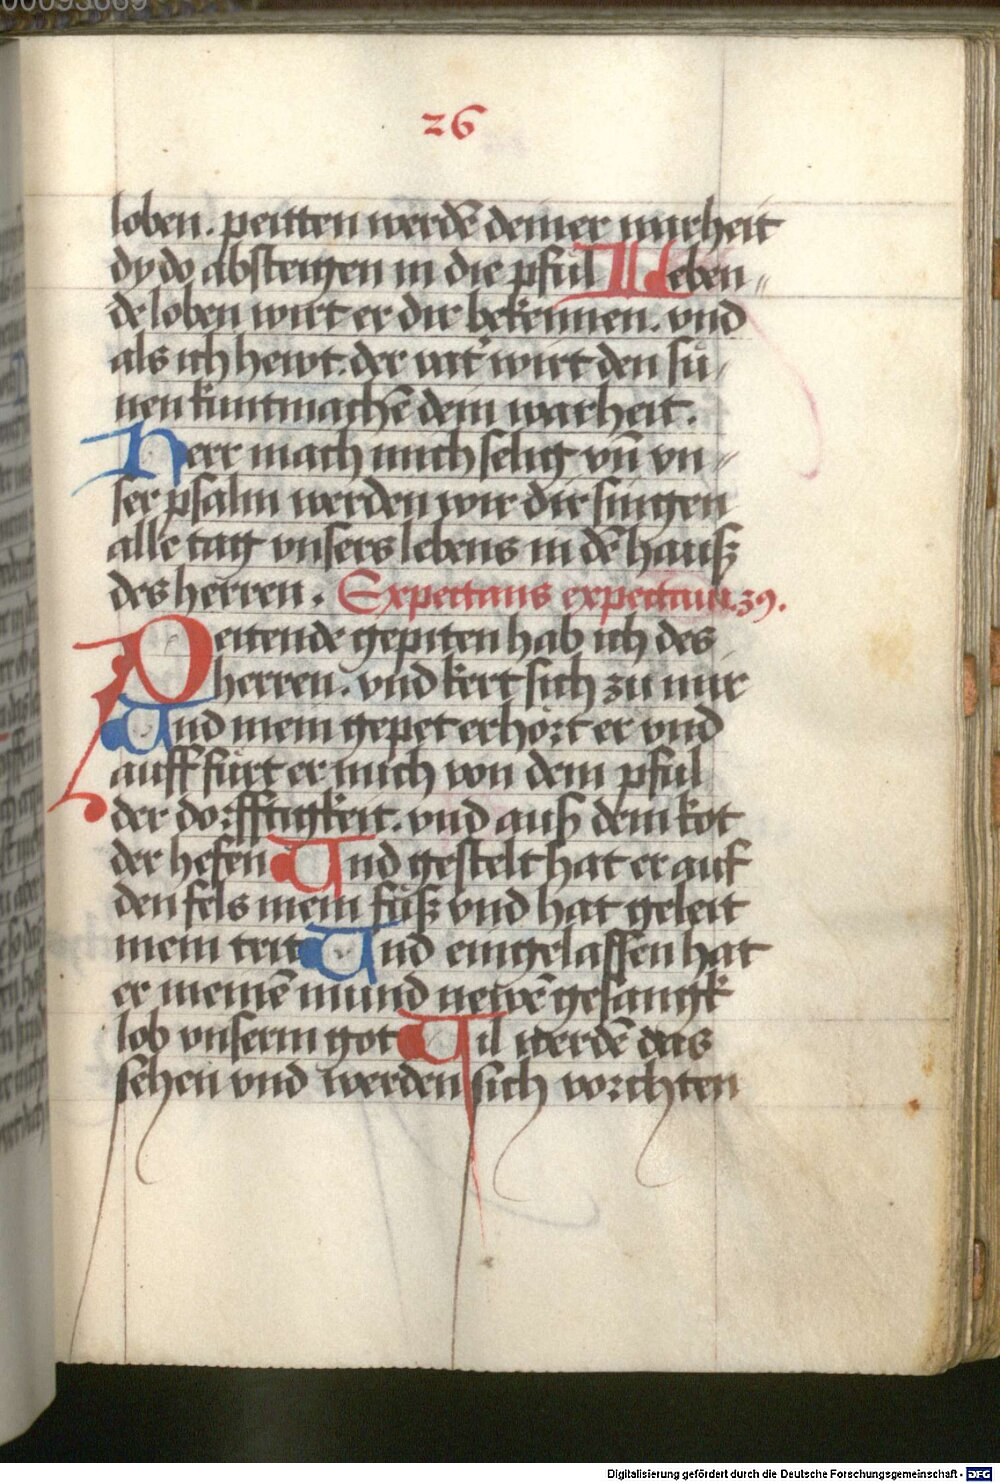 00093669
26
loben. peitten werdē deiner warheit
dy do absteigen in die pful Leben„
de loben wirt er dir bekennen. vnd
als ich hewt. der vat' wirt den sü/
nen kuntmachē dem warheit.
Herr mach mich selig vn̄ vn„
ser psalm werden wir dir singen
alle tag vnsers lebens in dē hauß
des herren. Expectans expectaui. 39.
Peitende gepiten hab ich des
herren. vnd kert sich zu mir
Und mein gepet erhört er vnd
auff fürt er mich von dem pful
der dorfftigkeit. vnd auß dem kot
der hefen Und gestelt hat er auf
den fels mein füß vnd hat geleit
mein trit Und eingelassen hat
er meinē mund newē gesangk
lob vnserm got Uil werdē das
sehen vnd werden sich vorchten
Digitalisierung gefördert durch die Deutsche Forschungsgemeinschaft - DFG